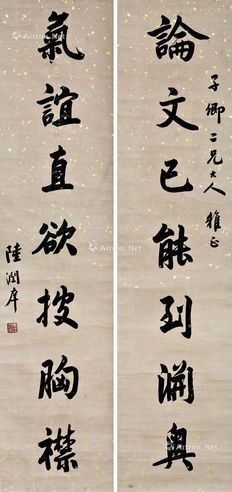 論文已能到淵奧
子卿二兄大人雅正
氣誼直欲披胸襟
陸潤庠
Artron.Net
Artron.Net
Artron.Net
Artron.Net